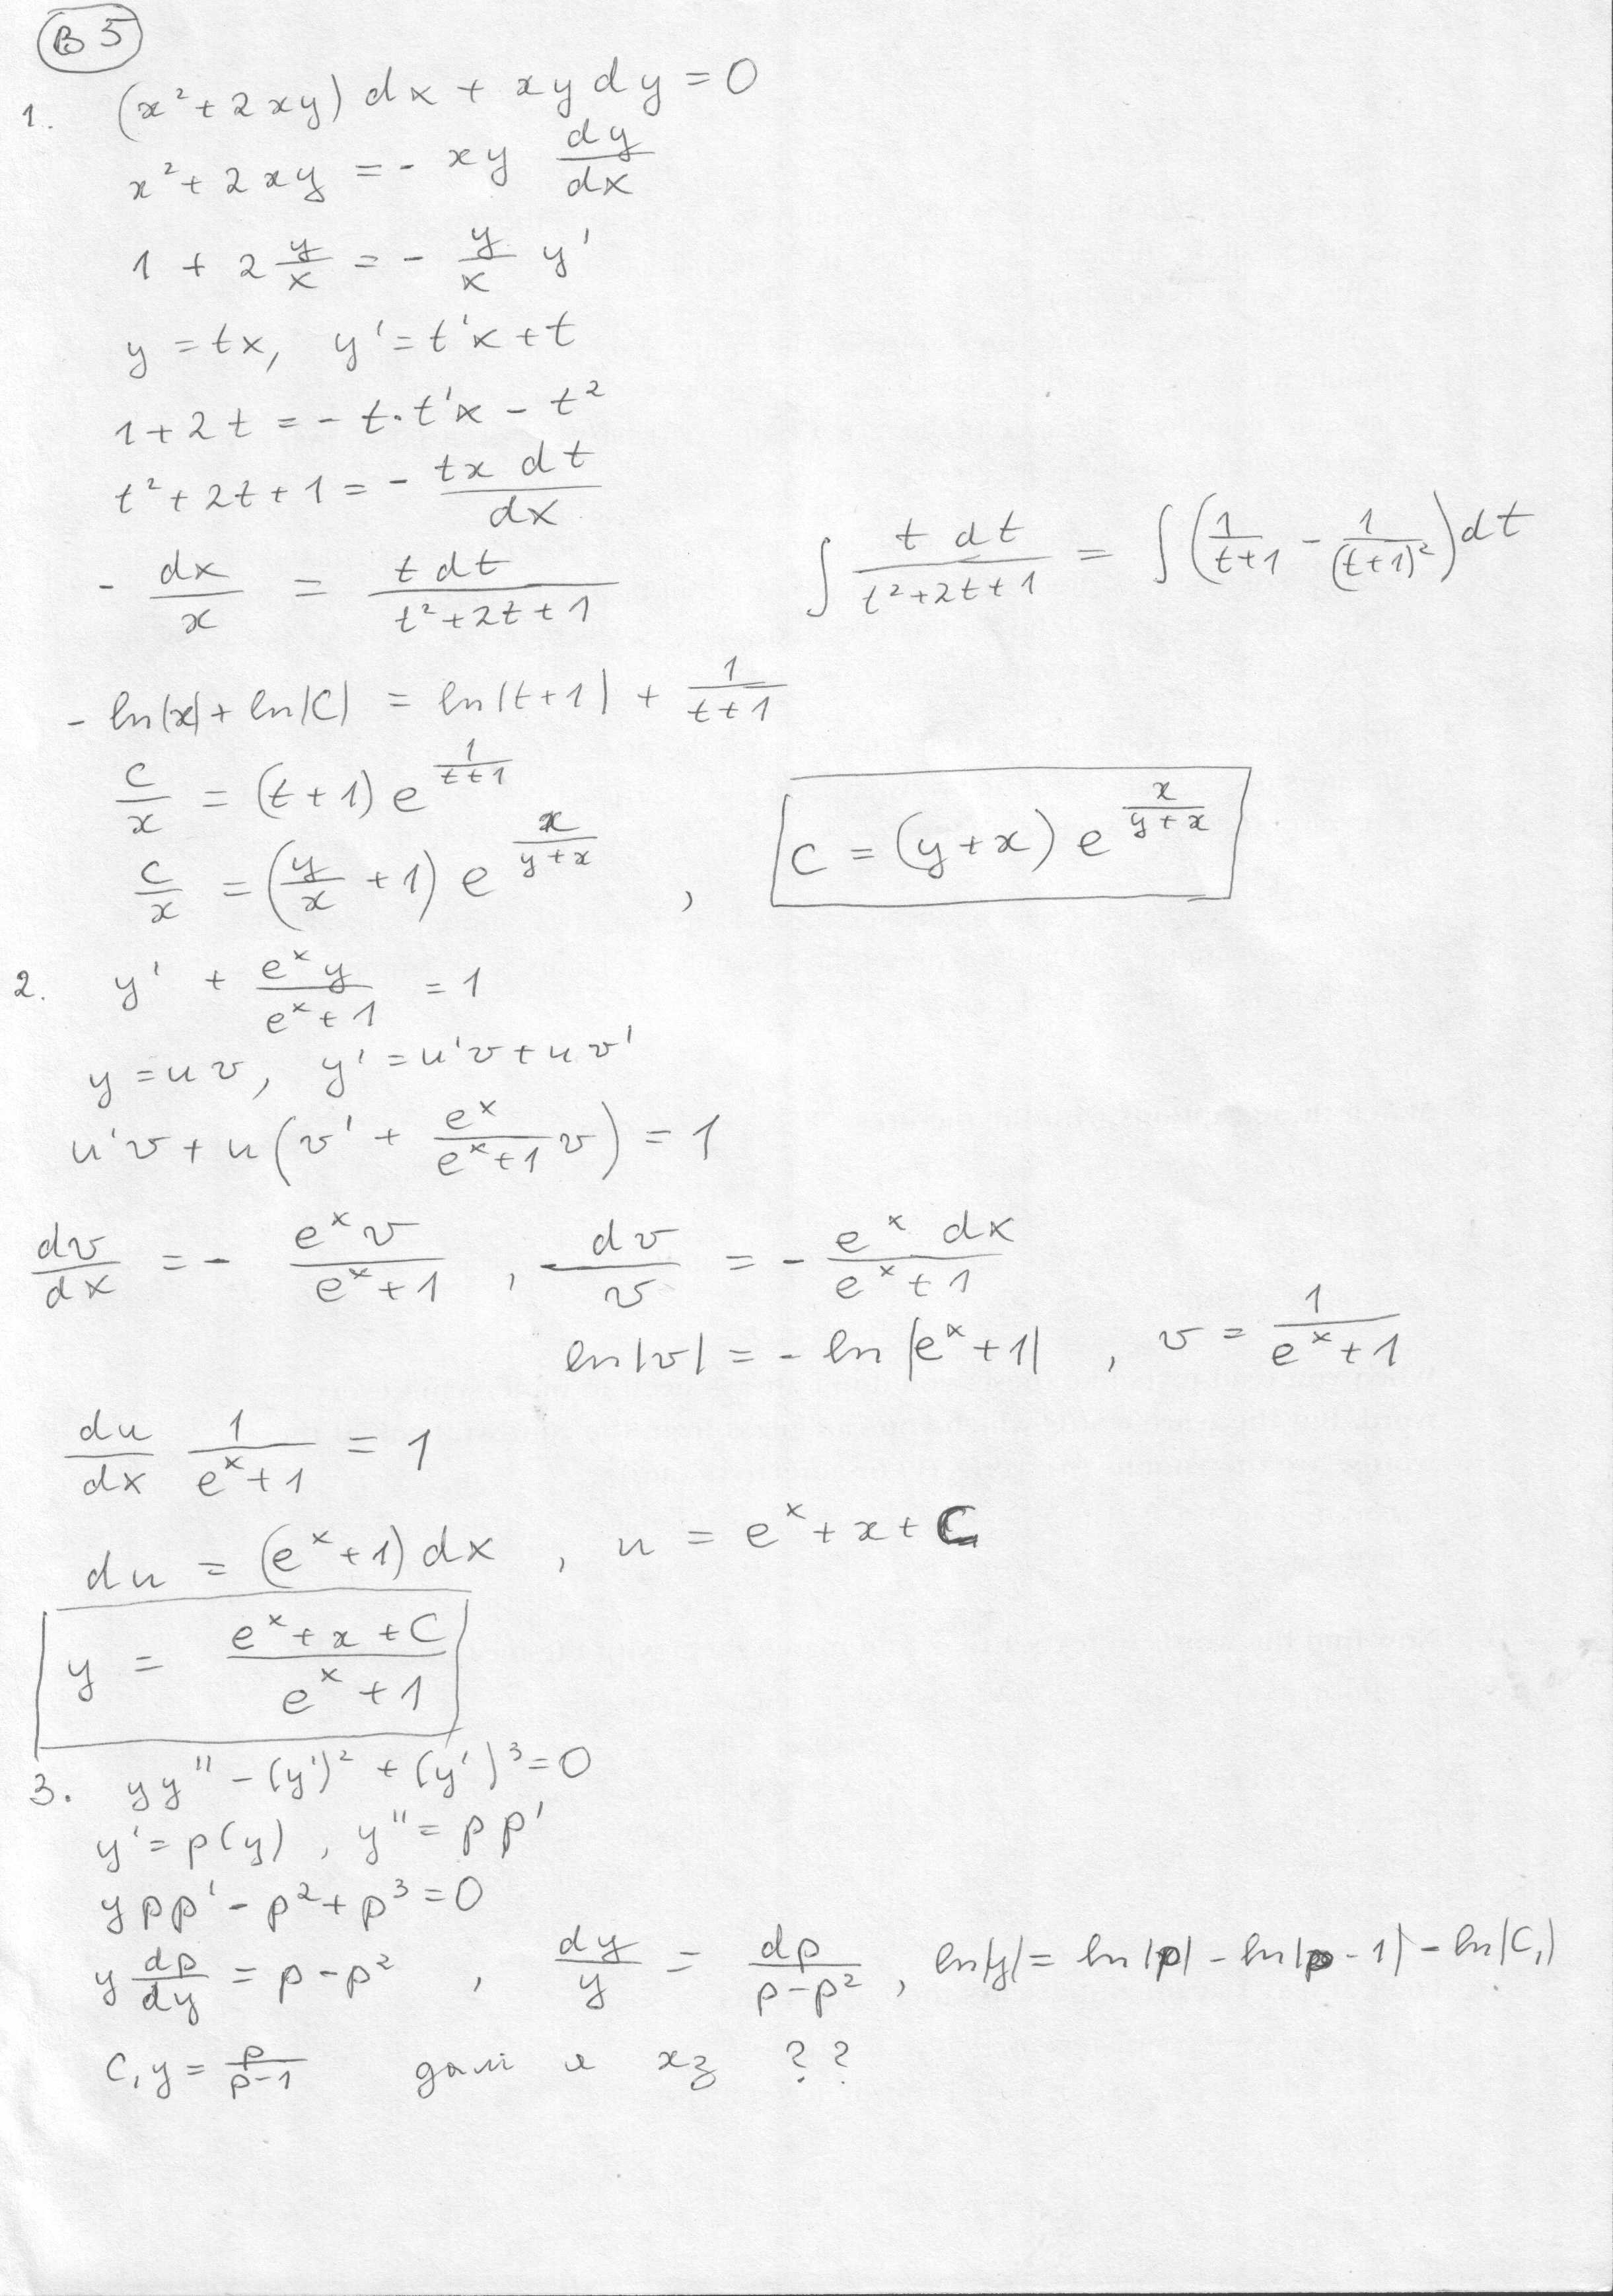 В 5
1. (x² + 2xy) dx + xy dy = 0
x² + 2xy = - xy dy/dx
1 + 2 y/x = - y/x y'
y = tx, y' = t'x + t
1 + 2t = - t·t'x - t²
t² + 2t + 1 = - tx dt/dx
- dx/x = t dt/(t² + 2t + 1) ∫ t dt/(t² + 2t + 1) = ∫ (1/(t+1) - 1/(t+1)²) dt
- ln|x| + ln|C| = ln|t+1| + 1/(t+1)
C/x = (t+1) e^(1/(t+1))
C/x = (y/x + 1) e^(x/(y+x)) , C = (y+x) e^(x/(y+x))
2. y' + e^x y/(e^x + 1) = 1
y = uv, y' = u'v + uv'
u'v + u(v' + e^x/(e^x+1) v) = 1
dv/dx = - e^x v/(e^x + 1) , dv/v = - e^x dx/(e^x + 1)
ln|v| = - ln|e^x + 1| , v = 1/(e^x + 1)
du/dx 1/(e^x + 1) = 1
du = (e^x + 1) dx , u = e^x + x + C
y = (e^x + x + C)/(e^x + 1)
3. yy'' - (y')² + (y')³ = 0
y' = p(y) , y'' = pp'
ypp' - p² + p³ = 0
y dp/dy = p - p² , dy/y = dp/(p - p²) , ln|y| = ln|p| - ln|p - 1| - ln|C₁|
C₁y = p/(p-1) дали я хз ??